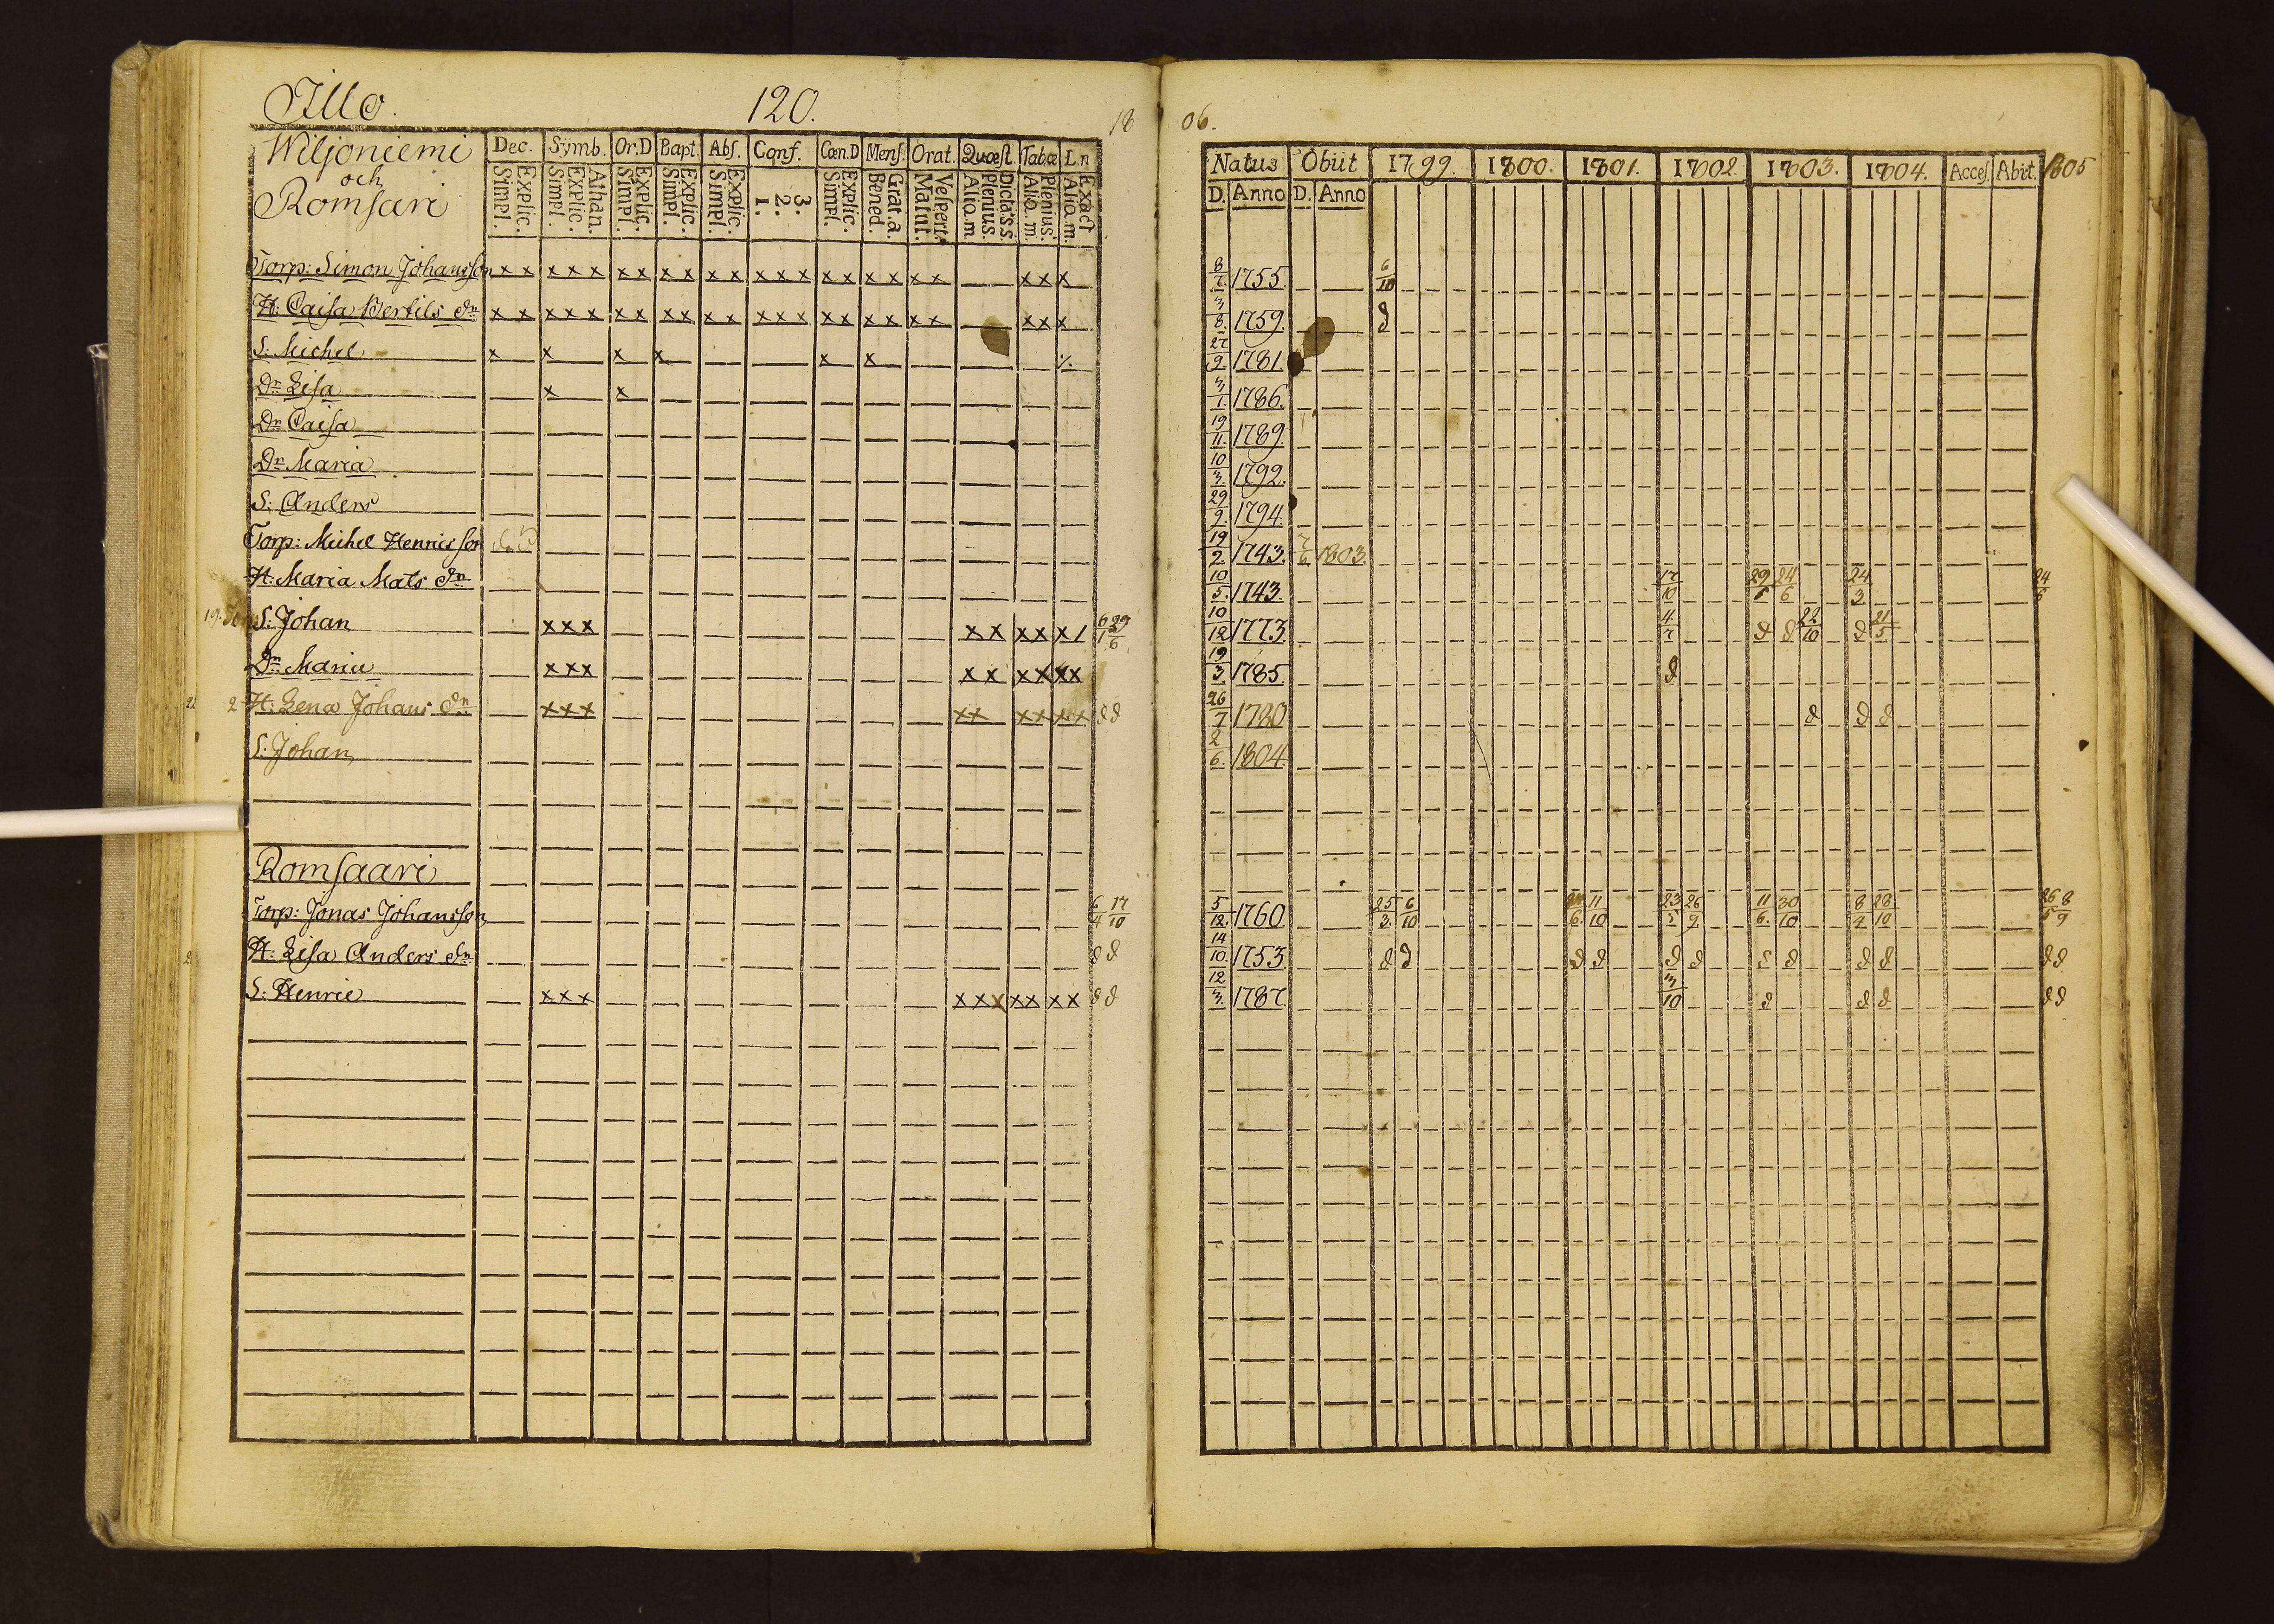 Jllo. 120. 18 06.
Wiljoniemi
och
Romsari
Dec. Symb. Or.D Bapt. Abs. Conf. Cœn.D Mens. Orat. Quæst Tabæ L.n
Explic. Simpl. Athan. Explic. Simpl. Explic. Simpl. Explic. Simpl. Explic. Simpl. 3. 2. 1. Explic. Simpl. Grat.a. Bened. Vespert. Matut. Dicta S.S. Plenius. Alio.m Plenius. Alio.m. Exact Alio.m.
Natus Obiit 1799. 1800. 1801. 1802. 1803. 1804. Acces. Abit. 1805
D. Anno D. Anno
Torp: Simon Johansson x x x x x x x x x x x x x x x x x x x x x x x x 8/7. 1755. 6/10
H: Caisa Bertils dn x x x x x x x x x x x x x x x x x x x x x x x x 3/8. 1759. d
S: Michel x x x x x x 27/9. 1781.
Dr Lisa x x 3/1. 1786.
Dr Caisa 19/11. 1789.
Dr Maria 10/3. 1792.
S: Anders 29/9. 1794.
Torp: Michel Henricsson 19/2. 1743. 7/6 1803.
H: Maria Mats dn 10/5. 1743. 17/10 29/5 24/6 24/3 24/6
S: Johan x x x x x x x x 6/1 29/6 10/12 1773. 4/7 d d 22/10 d 21/5
Dr Maria x x x x x x x x x 19/3. 1785. d
2 H: Lena Johans dn x x x x x x x x x d d 26/7 1780 d d d
S: Johan 2/6. 1804.
Romsaari
Torp: Jonas Johansson 6/4 17/10 5/12. 1760. 25/3. 6/10 11/10 23/5 26/9 11/6. 30/10 8/4 28/10 26/5 8/9
H: Lisa Anders dn d d 14/10 1753. d d d d d d d d d d d d
S: Henric x x x x x x x x x x d d 12/3. 1787. 3/10 d d d d d